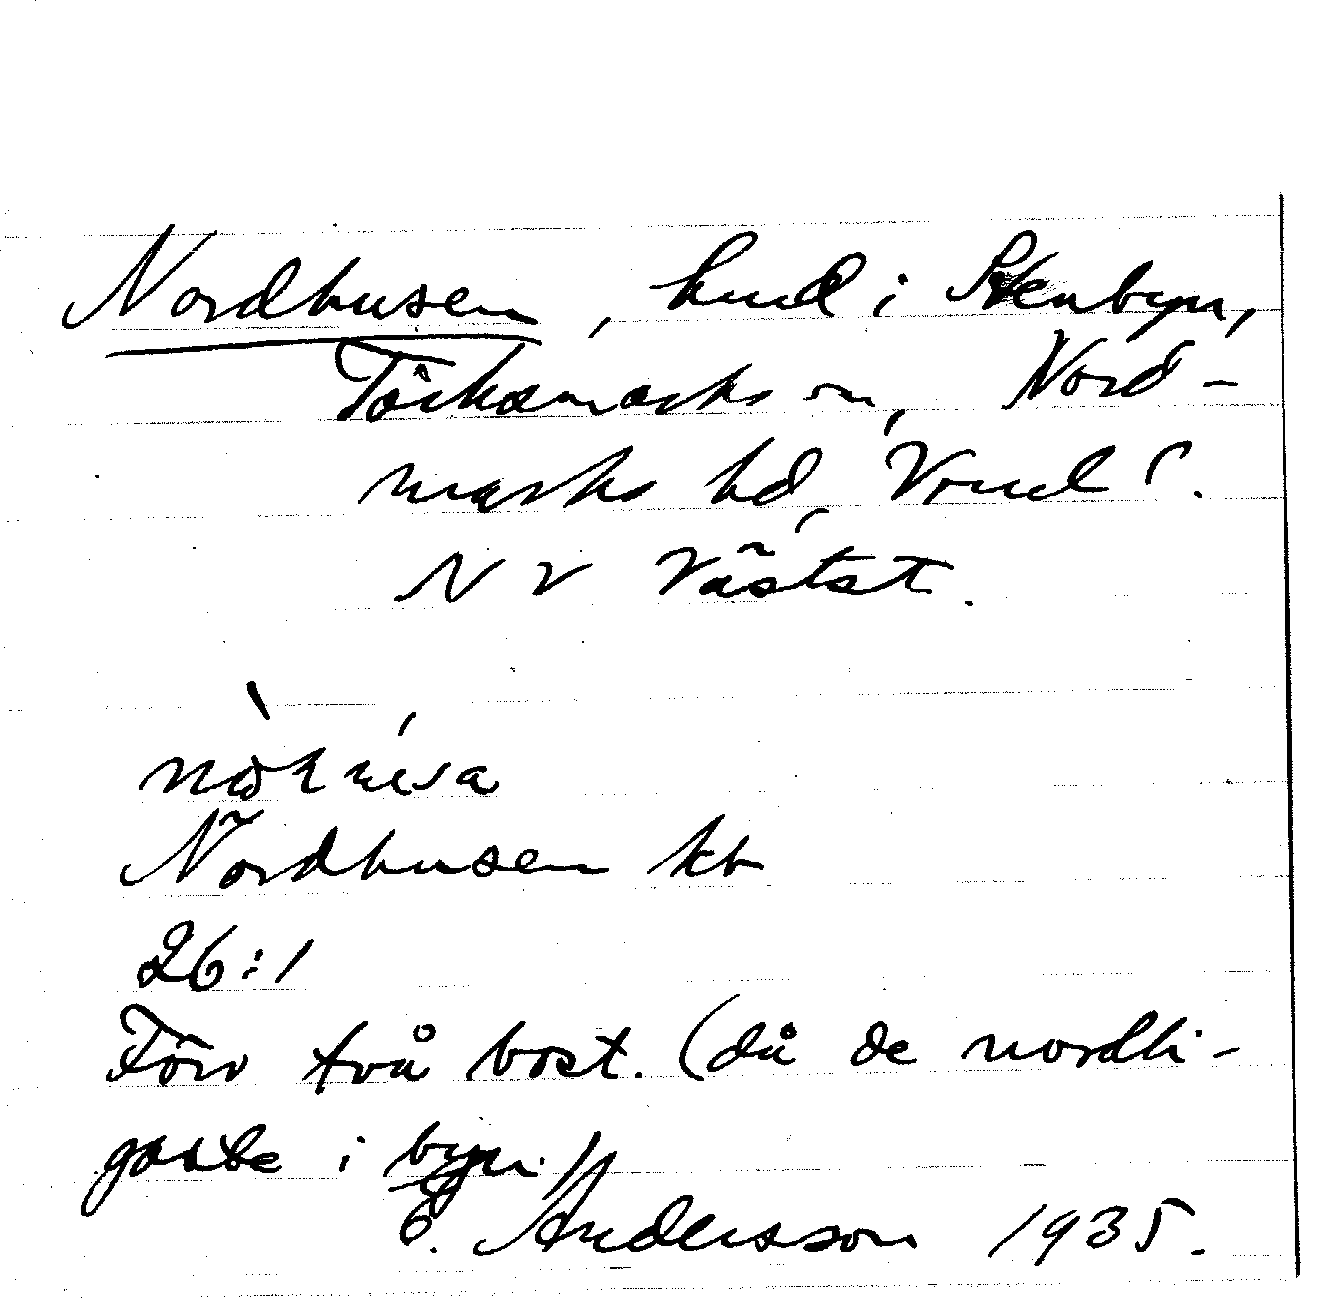 Nordhusen, hmd i Stenbyn,
Töcksmarks sn, Nord-
marks hd, Vrml l.
NV Västst.
Nordhusen kb
26:1
Förr två bost. (då de nordli-
gaste i byn.)
E. Andersson 1935.